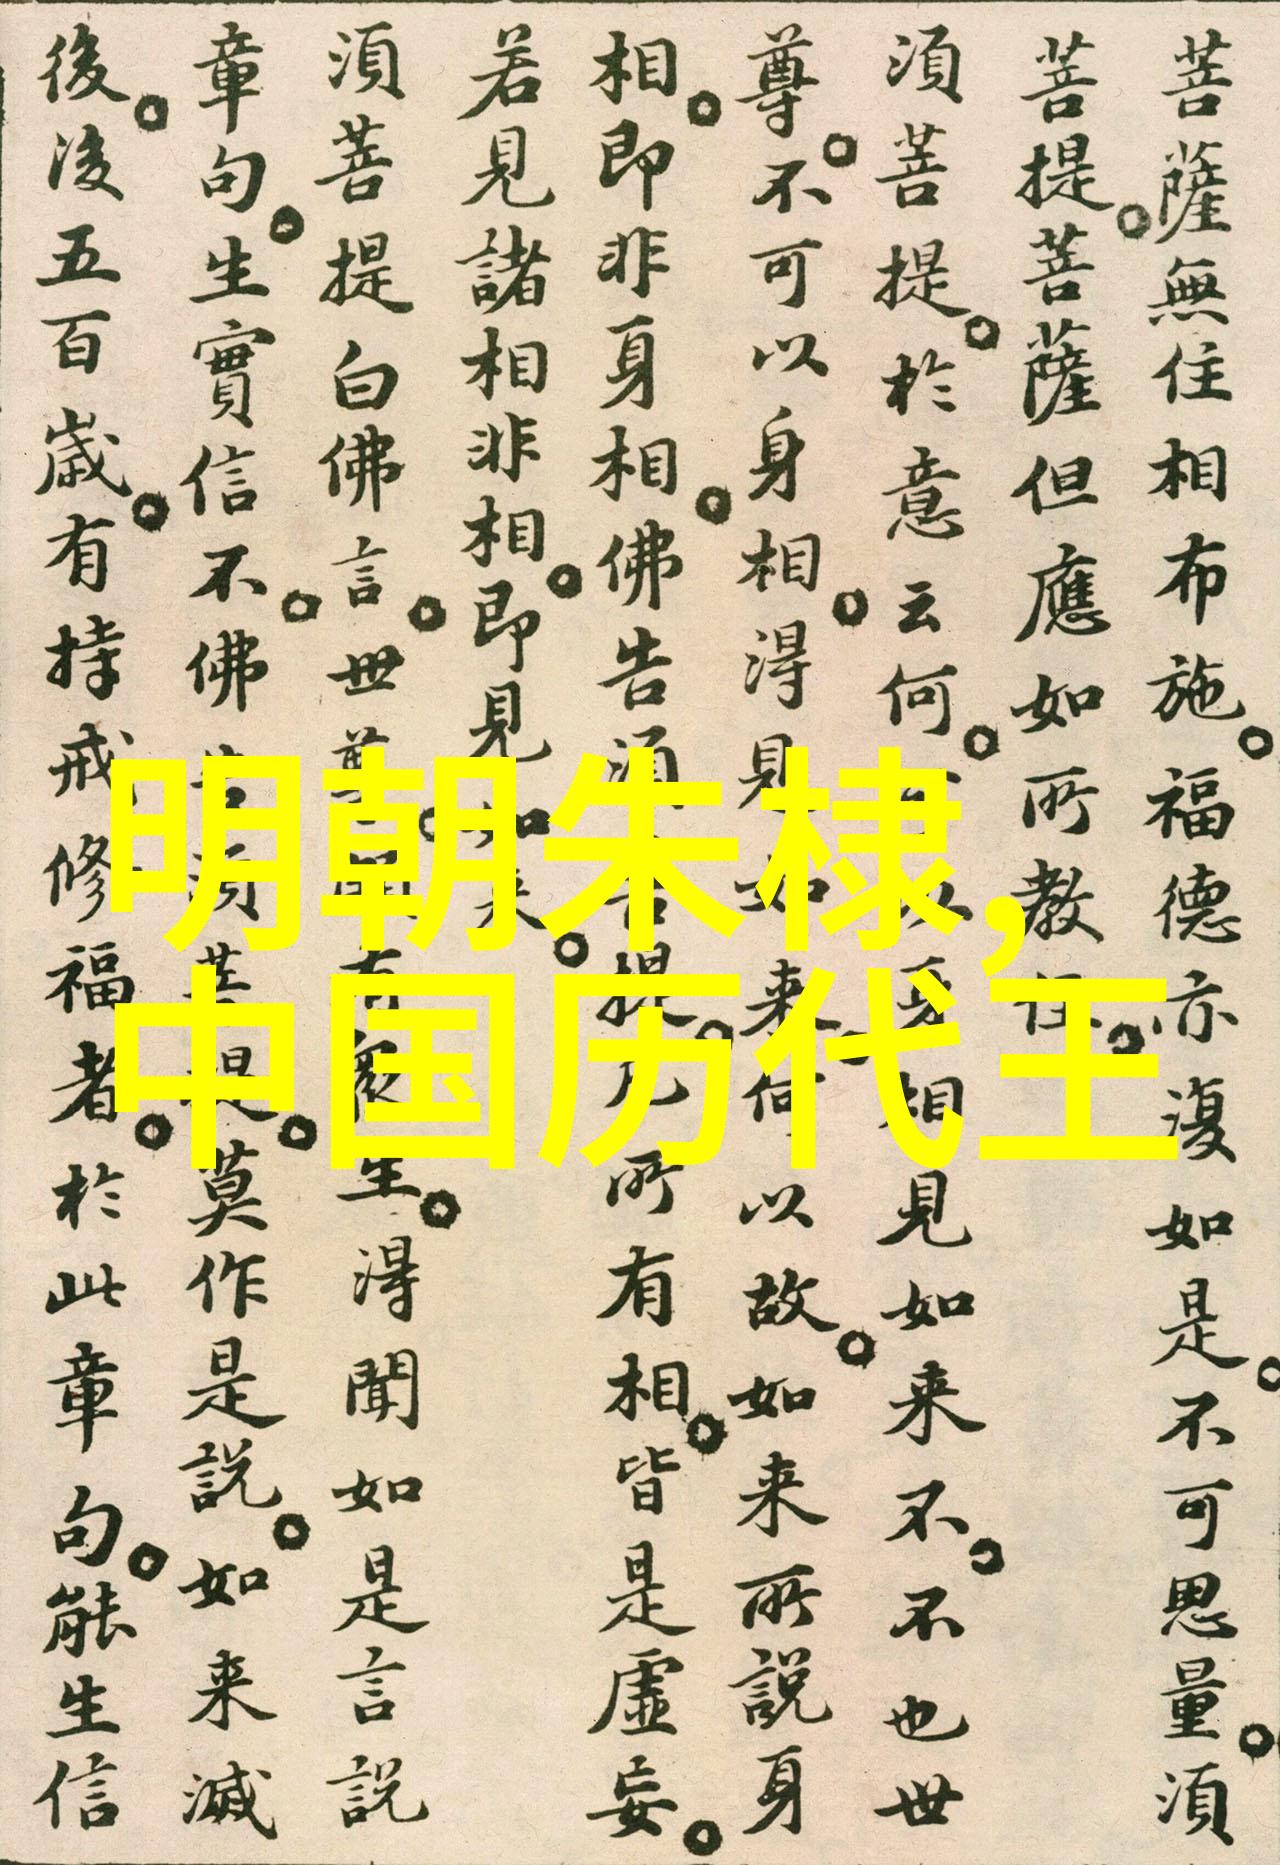 明朝朱棣,
中国历代王
菩薩無住相布施福德亦復如是不可思量須
菩提菩薩但應如所教住
須菩提於意云何可以身相見如来不不也世
尊不可以身相得見如来何以故如来所說身
相即非身相佛告須菩提凡所有相皆是虛妄
若見諸相非相即見如来
須菩提白佛言世尊頗有衆生得聞如是言説
章句生實信不佛告須菩提莫作是説如来滅
後後五百歳有持戒修福者於此章句能生信